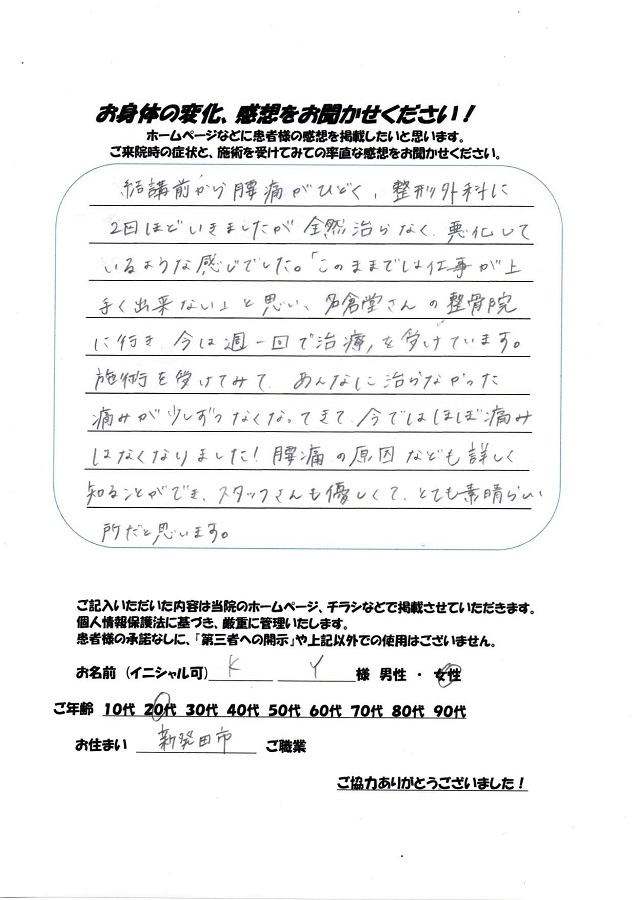 お身体の変化、感想をお聞かせください！
ホームページなどに患者様の感想を掲載したいと思います。
ご来院時の症状と、施術を受けてみての率直な感想をお聞かせください。
結講前から腰痛がひどく、整形外科に
2回ほどいきましたが全然治らなく、悪化して
いるような感じでした。「このままでは仕事が上
手く出来ない」と思い、名倉堂さんの整骨院
に行き、今は週一回で治療を受けています。
施術を受けてみて、あんなに治らなかった
痛みが少しずつなくなってきて、今ではほぼ痛み
はなくなりました！腰痛の原因なども詳しく
知ることができ、スタッフさんも優しくて、とても素晴らしい
所だと思います。
ご記入いただいた内容は当院のホームページ、チラシなどで掲載させていただきます。
個人情報保護法に基づき、厳重に管理いたします。
患者様の承諾なしに、「第三者への開示」や上記以外での使用はございません。
お名前（イニシャル可） K Y 様 男性 ・ 女性
ご年齢 10代 20代 30代 40代 50代 60代 70代 80代 90代
お住まい 新発田市 ご職業
ご協力ありがとうございました！